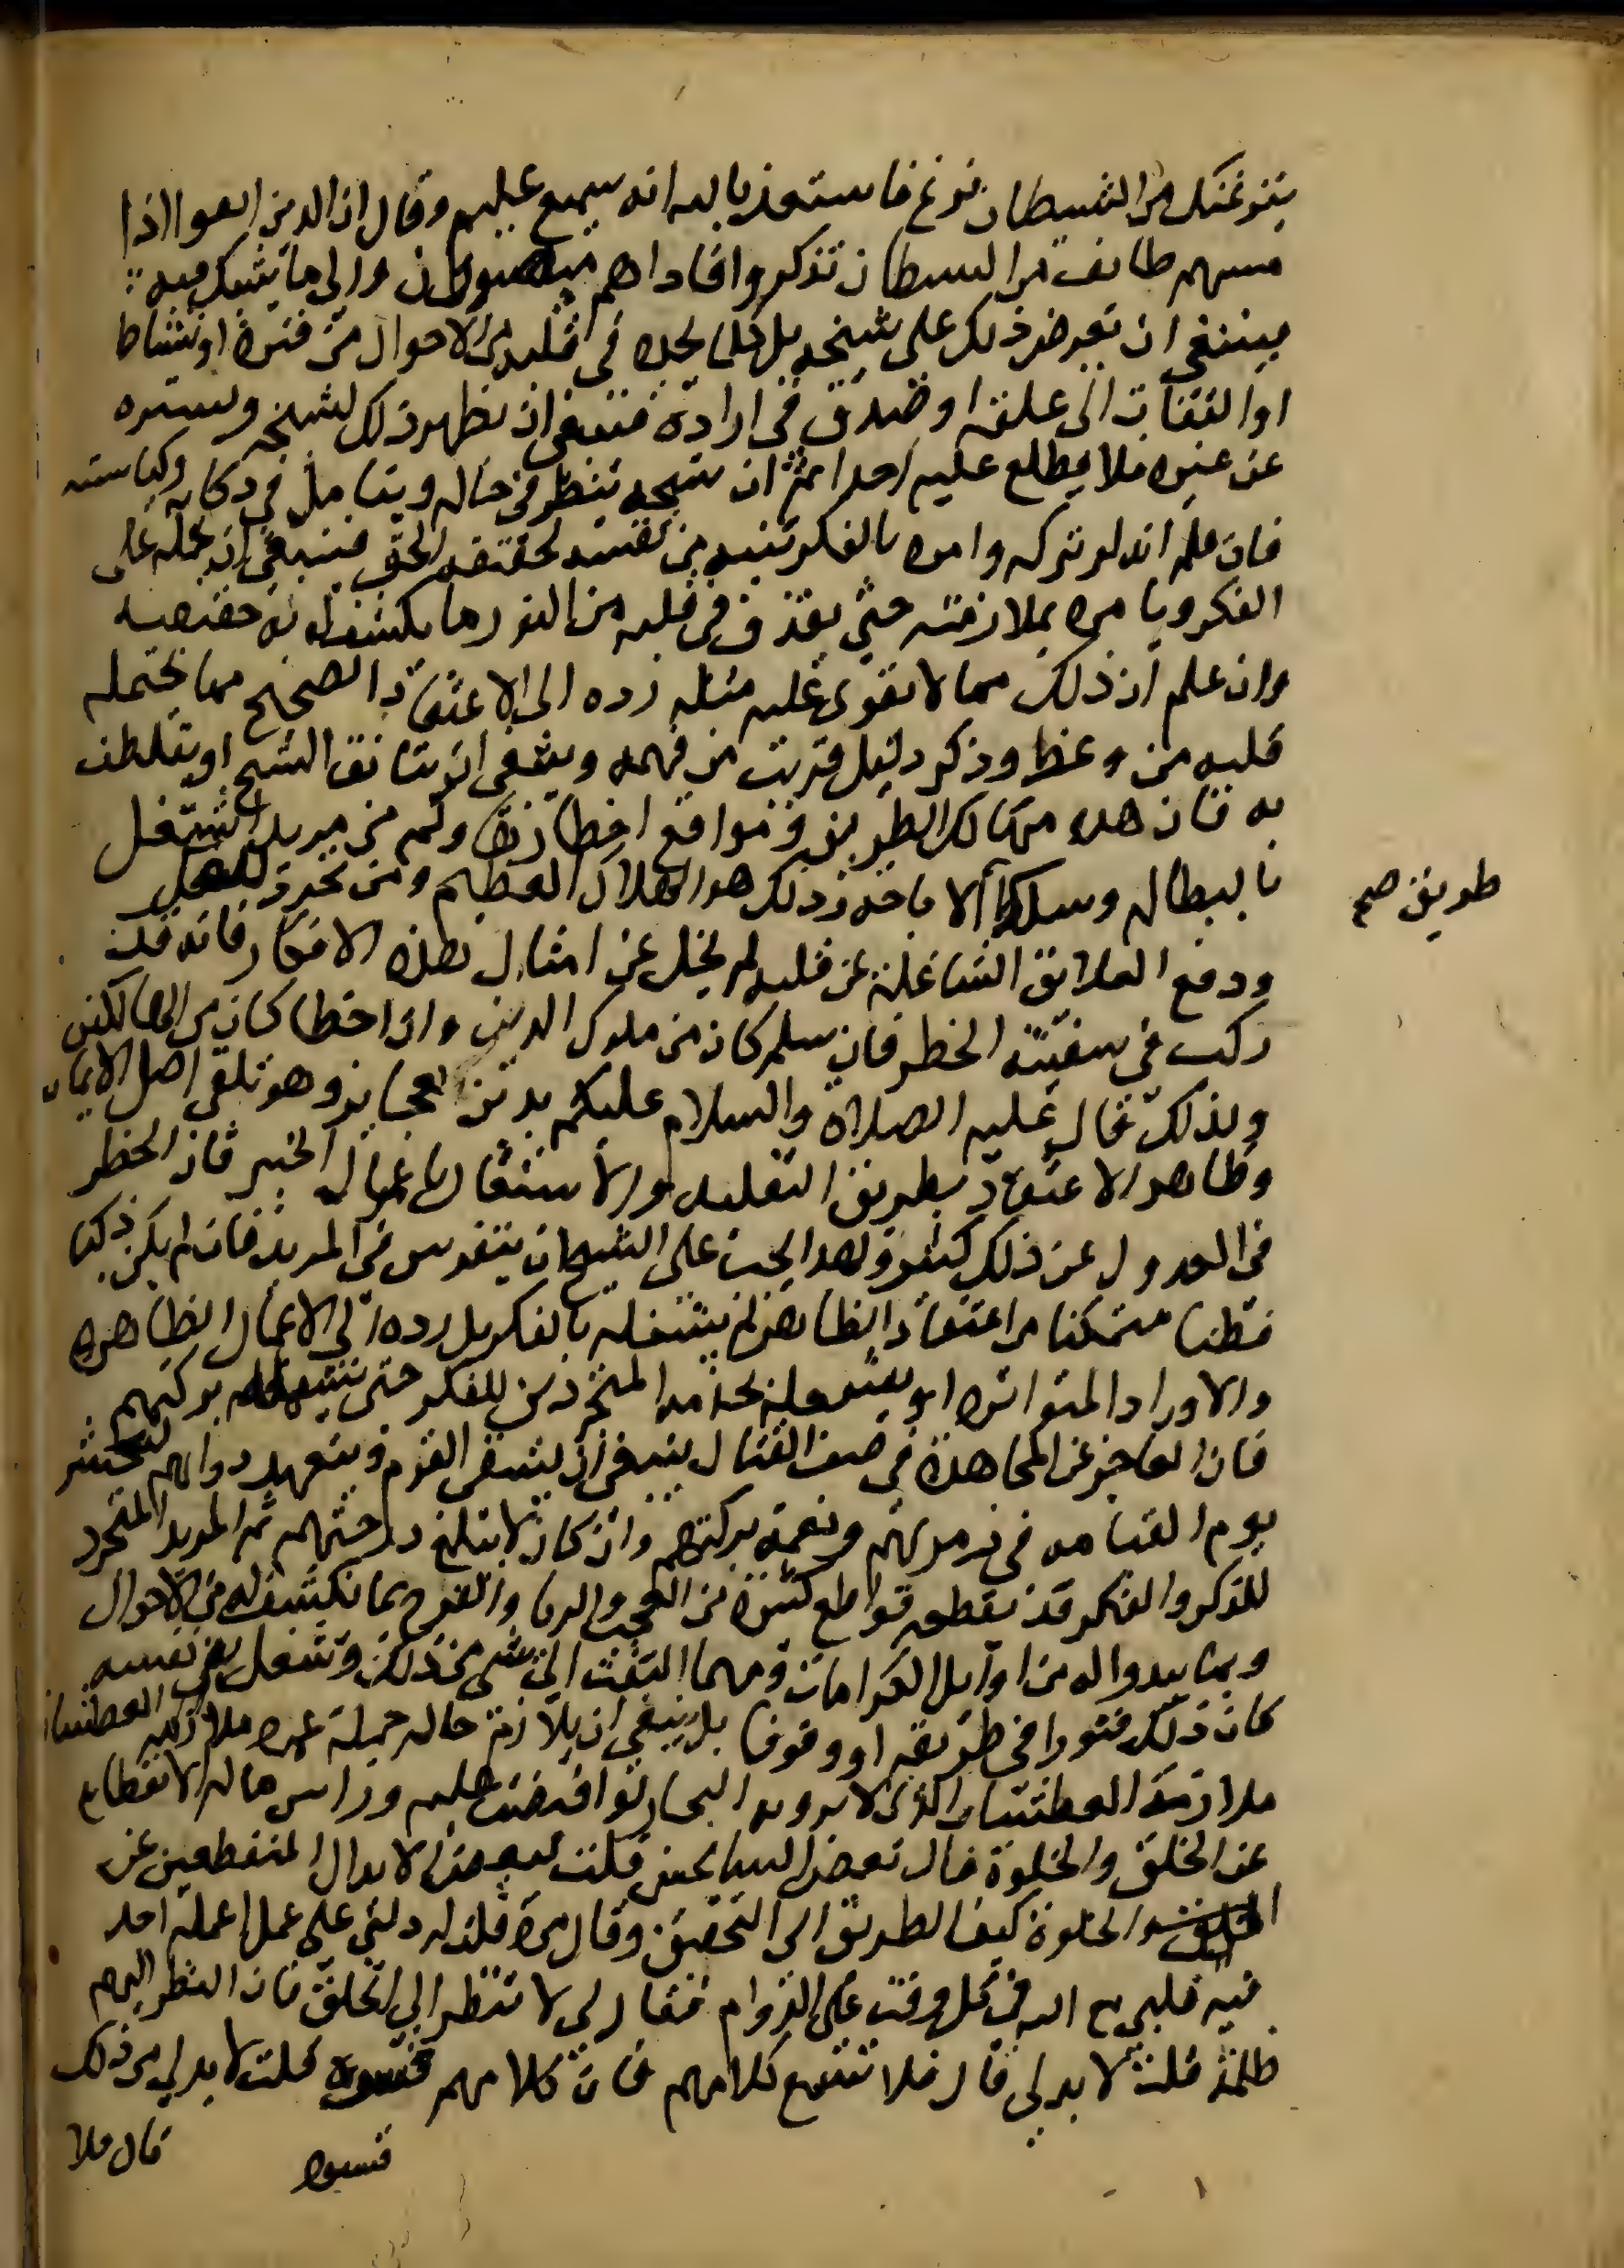 ينزغنك من الشيطان نزغ فاستعذ بالله انه سميع عليم وقال ان الذين اتقوا اذا
مسهم طائف من الشيطان تذكروا فاذاهم مبصرون والى ما يشك فيه
فينبغي ان يعرض ذلك على شيخه بل كلما يجد في قلبه من الاحوال من فترة او نشاط
او التفات الى علقة او صدق في ارادة فينبغي ان يظهر ذلك لشيخه ويستره
عن غيره فلا يطلع عليه احدا ثم ان شيخه ينظر في حاله ويتامل في ذكايه وكياسته
فان علم انه لو تركه وامره بالفكر تنبه من نفسه لحقيقة الحق فينبغي ان يحمله على
الفكر ويامره بملازمته حتى يقذف في قلبه من النور ما يكشف له حقيقته
وان علم ان ذلك مما لا يقوى عليه مثله رده الى الاعتقاد الصحيح مما يحتمله
قلبه من وعظ وذكر دليل قريب من فهمه وينبغي ان يتانق الشيخ او يتلطف
به فان هذه مهالك الطريق ومواقع اخطارها وكم من مريد اشتغل
بالبطالة وسلك الاباحة وذلك هو الهلاك العظيم ومن تجرد للفكر
طريق صح
ودفع العلايق الشاغلة عن قلبه لم يخل عن امثال هذه الافكار فانه قد
ركب في سفينة الخطر فان سلم كان من ملوك الدين وان اخطا كان من الهالكين
ولذلك قال عليه الصلاة والسلام عليكم بدين العجايز وهو تلقي اصل الايمان
وظاهر الاعتقاد بطريق التقليد والاشتغال باعمال الخير فان الخطر
في العدول عن ذلك كثير ولهذا يجب على الشيخ ان يتفرس في المريد فان لم يكن ذكيا
فطنا متمكنا من اعتقاد الظاهر لم يشغله بالفكر بل رده الى الاعمال الظاهرة
والاوراد المتواترة او يشغله بخدمة المتجردين للفكر حتى تشمله بركتهم
فان العاجز عن المجاهدة في صف القتال ينبغي ان يسقي القوم ويتعهد دوابهم ليحشر
يوم القيامة في زمرتهم وتعمه بركتهم وان كان لا يبلغ درجتهم ثم المريد المتجرد
للذكر والفكر قد يقطعه قواطع كثيرة من العجب والريا والفرح بما ينكشف له من الاحوال
وبما يبدوا له من اوايل الكرامات ومهما التفت الى شي من ذلك وشغل به نفسه
كان ذلك فتورا في طريقه او وقوفا بل ينبغي ان يلازم حاله جملة عمره ملازمة العطشان
ملازمة العطشان الذي لا يرويه البحار لو افيضت عليه وراس ماله الانقطاع
عن الخلق والخلوة قال بعض السياحين قلت لبعض الابدال المنقطعين عن
الخلق والخلوة كيف الطريق الى التحقيق وقال مرة قلت له دلني على عمل اعمله اجد
فيه قلبي مع الله في كل وقت على الدوام فقال لي لا تنظر الى الخلق فان النظر اليهم
ظلمة قلت لا بد لي قال فلا تسمع كلامهم فان كلامهم قسوة قلت لا بد لي من ذلك
قسوة
قال فلا